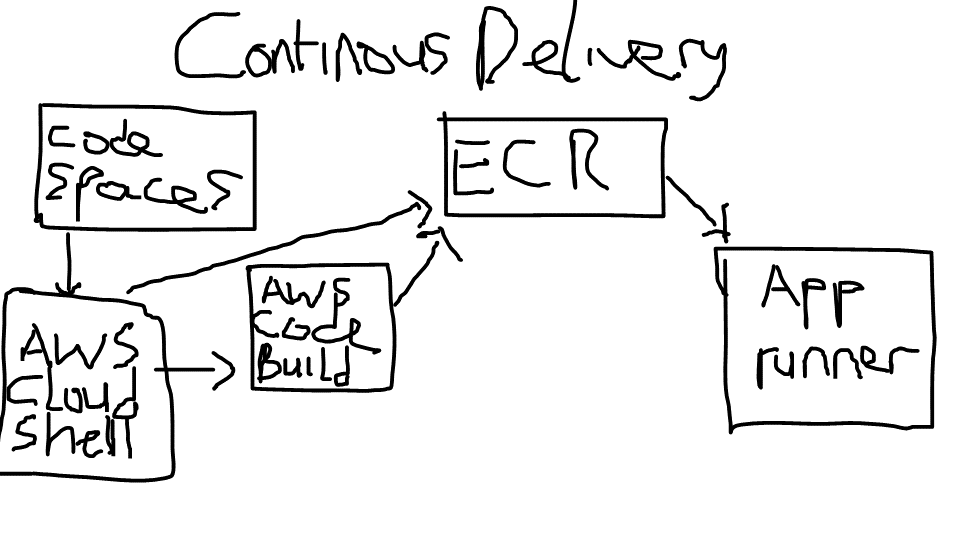 Continous Delivery
Code
Spaces
ECR
AWS
Cloud
Shell
AWS
Code
Build
App
runner